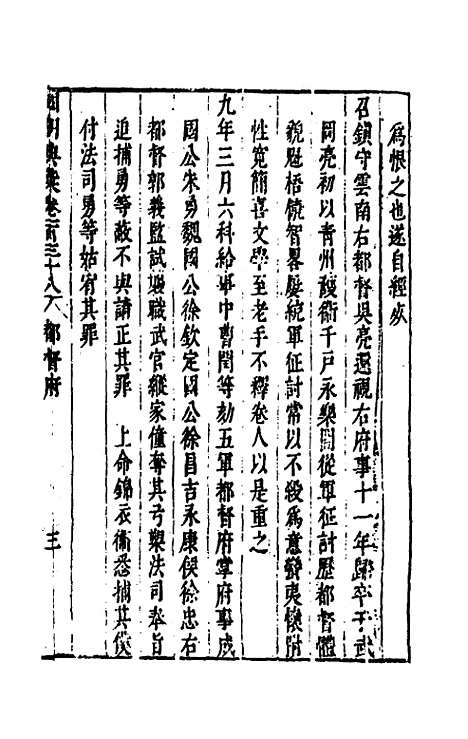 為恨之也遂自經歿
召鎮守雲南右都督吳亮還視右府事十一年歸卒于武
岡亮初以青州護衛千戶永樂間從軍征討歷都督體
貌魁梧饒智畧屡統軍征討常以不殺為意發夷懷附
性寬簡喜文學至老手不釋卷人以是重之
九年三月六科給事中曹閏等劾五軍都督府掌府事成
國公朱勇魏國公徐欽定國公徐昌吉永康侯徐忠右
都督郭義監試襲職武官縱家僮奪其弓槊法司奉旨
追捕勇等故不與請正其罪 上命錦衣衛悉捕其僕
付法司勇等姑宥其罪
國朝典彙卷一百三十八 都督府 三